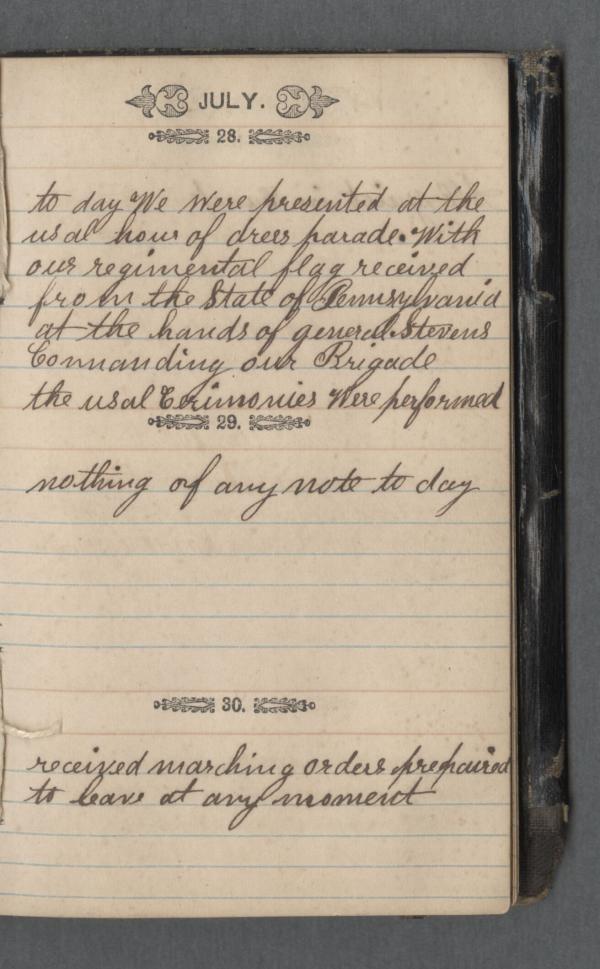 JULY.
28.
to day We were presented at the
usal hour of drees parade. With
our regimental flag received
from the State of Pennsylvania
at the hands of general Stevens
Comanding our Brigade
the usal Cerimonies Were performed
29.
nothing of any note to day
30.
received marching orders prepaired
to leave at any moment